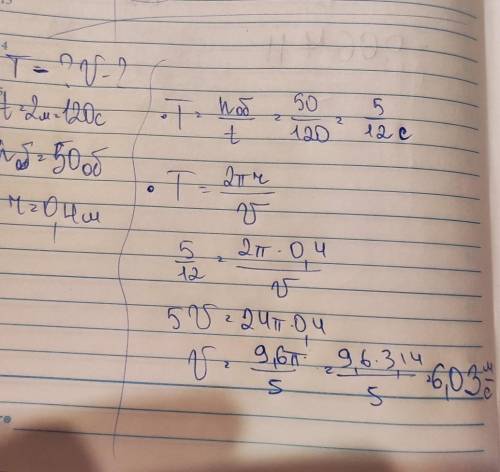 T = ? v - ?
t = 2м = 120с
nоб = 50об
r = 0,4м
· T = nоб/t = 50/120 = 5/12 с
· T = 2πr/v
5/12 = 2π · 0,4/v
5v = 24π · 0,4
v = 9,6π/5 = 9,6 · 3,14/5 = 6,03 м/с